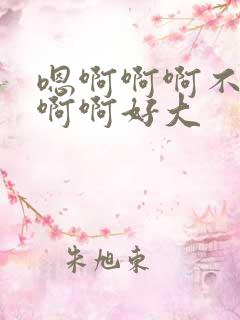 嗯啊啊啊不
啊啊好大
朱旭东